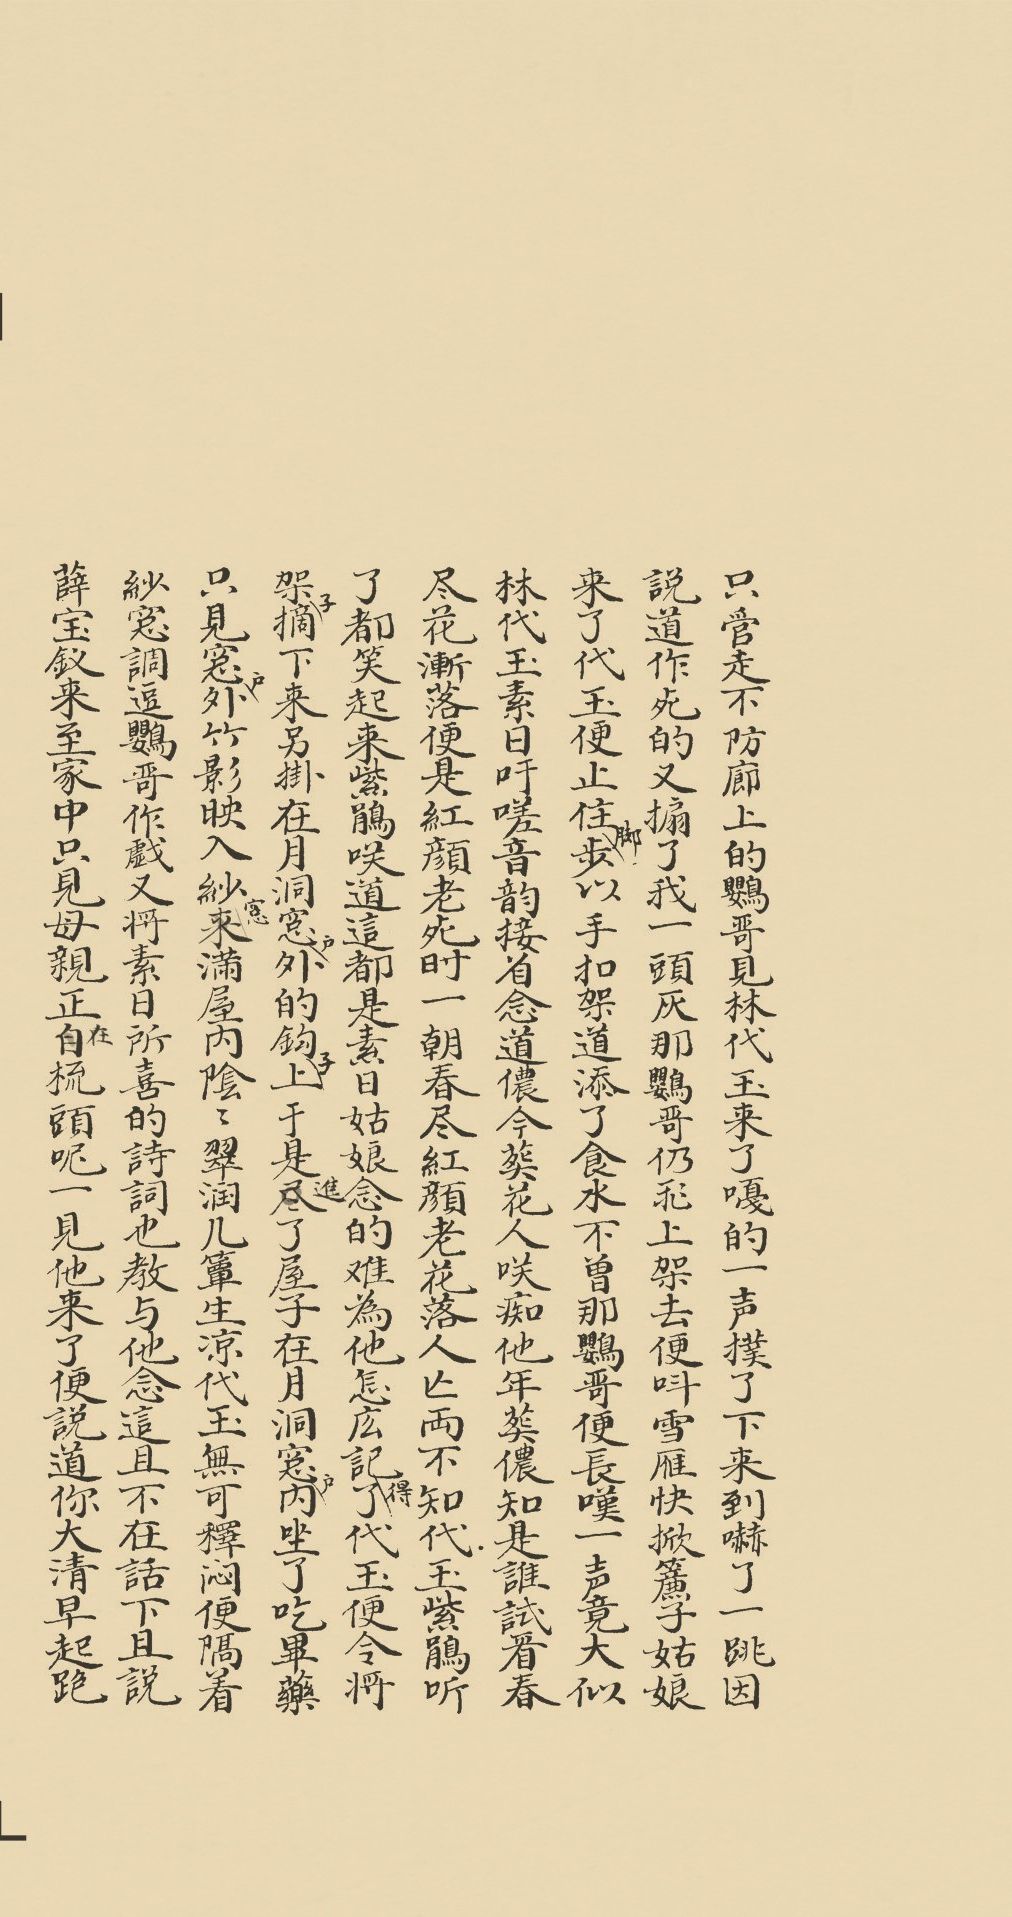 只管走不防廊上的鸚哥見林代玉来了嗄的一声撲了下来到嚇了一跳因
説道作死的又搧了我一頭灰那鸚哥仍飛上架去便呌雪雁快掀簾子姑娘
来了代玉便止住歩脚以手扣架道添了食水不曾那鸚哥便長嘆一声竟大似
林代玉素日吁嗟音韵接着念道儂今葬花人咲痴他年葬儂知是誰試看春
尽花漸落便是紅顔老死时一朝春尽紅顔老花落人亡両不知代玉紫鵑听
了都笑起来紫鵑咲道這都是素日姑娘念的难為他怎広記得了代玉便令將
架子摘下来另掛在月洞窓戶外的鈎子上于是尽進了屋子在月洞窓戶内坐了吃畢藥
只見窓戶外竹影映入紗窓来滿屋内陰〻翠润几簟生凉代玉無可釋闷便隔着
紗窓調逗鸚哥作戲又將素日所喜的詩詞也教与他念這且不在話下且説
薛宝釵来至家中只見母親正自在梳頭呢一見他来了便説道你大清早起跑